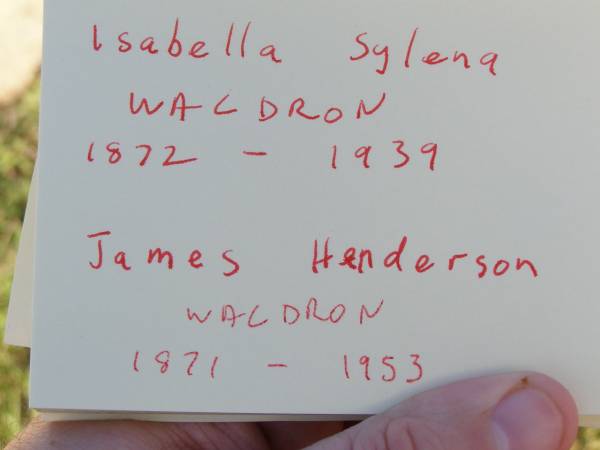 Isabella Sylena
WALDRON
1872 - 1939
James Henderson
WALDRON
1871 - 1953